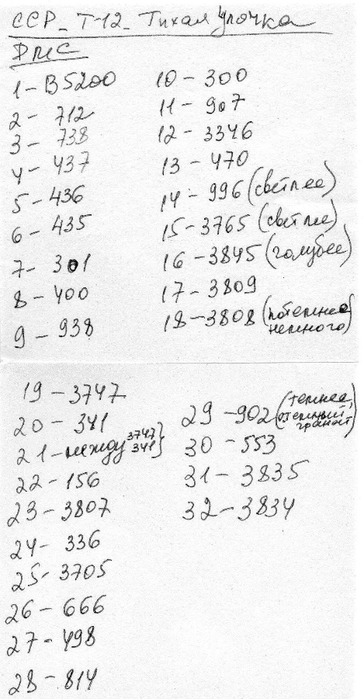 ССР_Т-12_Тихая улочка
ДМС
1-В5200
2-712
3-738
4-437
5-436
6-435
7-301
8-400
9-938
10-300
11-907
12-3346
13-470
14-996 (светлее)
15-3765 (светлее)
16-3845 (голубее)
17-3809
18-3808 (потемнее
немного)
19-3747
20-341
21-между 3747
341}
22-156
23-3807
24-336
25-3705
26-666
27-498
28-814
29-902 (темнее,
темный
гранат)
30-553
31-3835
32-3834